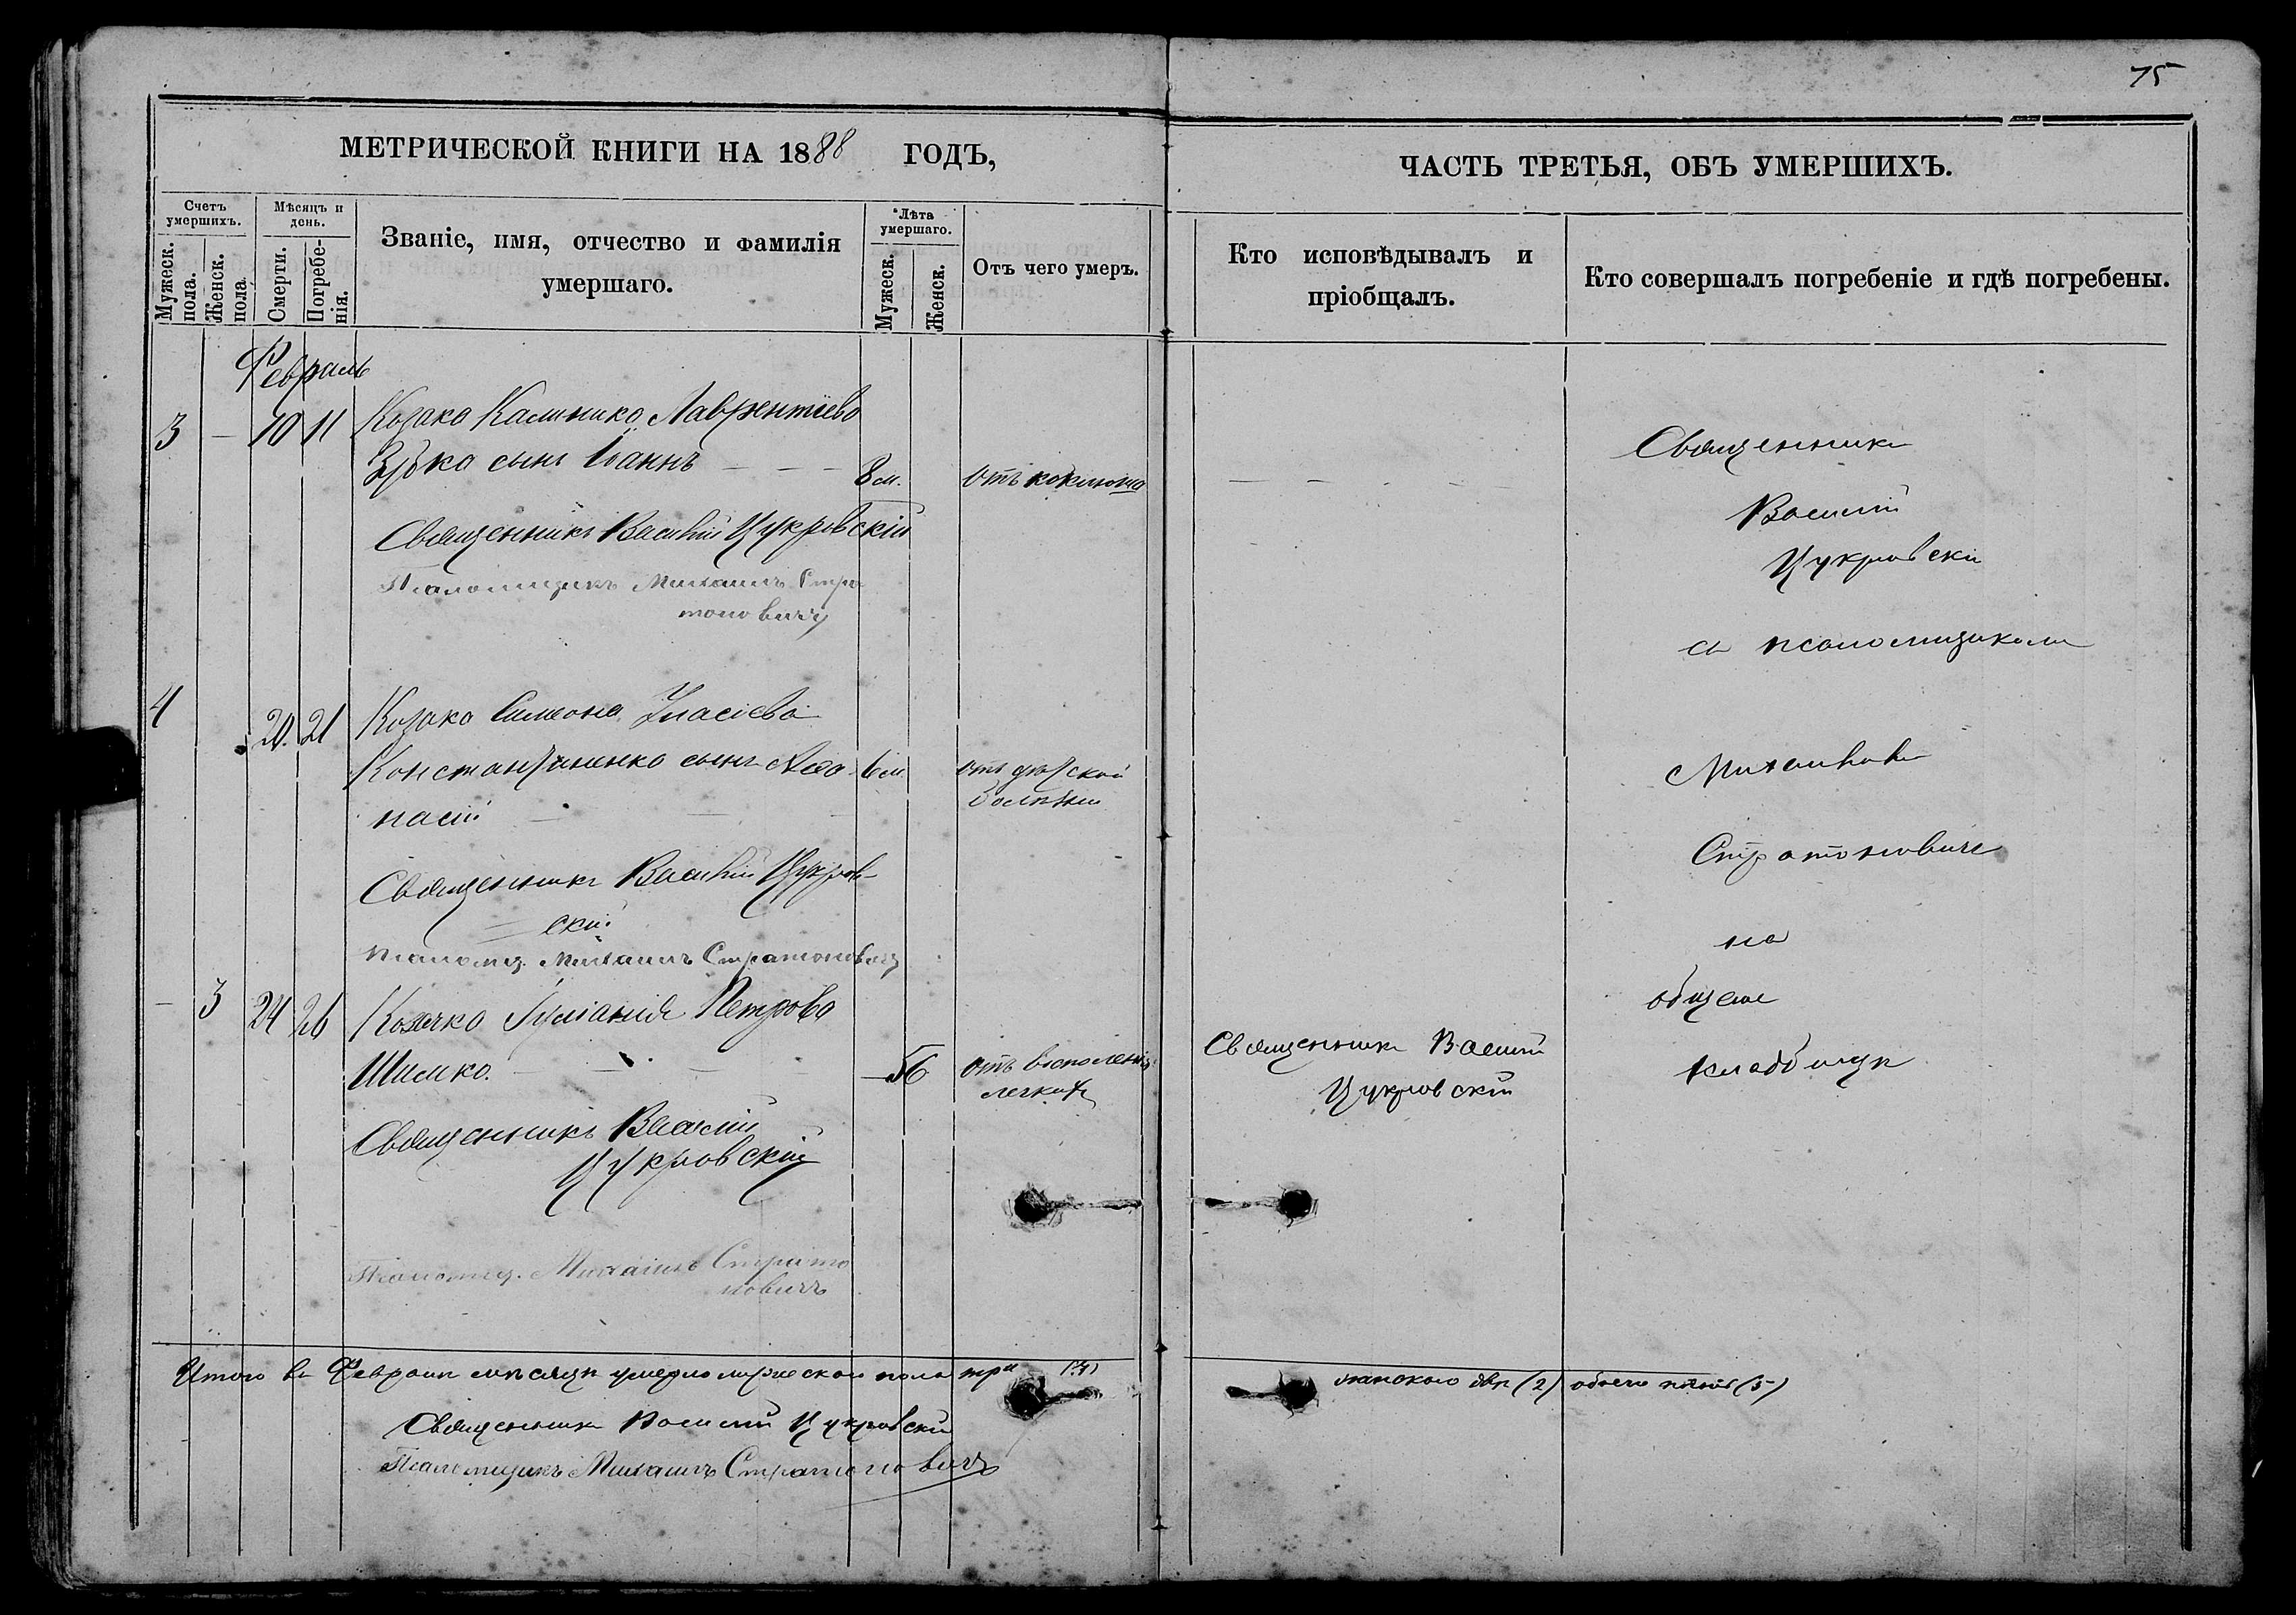 75
МЕТРИЧЕСКОЙ КНИГИ НА 1888 ГОДЪ,
Счетъ умершихъ.
Мужеск. пола.
Женск. пола
Мѣсяцъ и день.
Смерти.
Погребенія.
Званіе, имя, отчество и фамилія
умершаго.
Лѣта умершаго.
Мужеск.
Женск.
Отъ чего умеръ.
Февраль
3 — 10 11 Козака Калиника Лаврентіева
сынъ Іоаннъ — — — 8 м. отъ коклюша
Священникъ Василій Цукровскій
Псаломщикъ Михаилъ Стра
тоновичъ
4 20. 21 Козака Симеона
Константиненко сынъ Аѳа- 6 м. отъ дѣтской
насій — — — болѣзни
Священникъ Василій Цукров-
скій
Псаломщ. Михаилъ Стратоновичъ
— 3 24 26 Козачка Іуліанія Петрова
Шимко. — — — 56 отъ воспаленія
легкихъ
Священникъ Василій
Цукровскій
Псаломщ. Михаилъ Страто
новичъ
Итого въ Февралѣ мѣсяцѣ умерло мужеска пола три
Священникъ Василій Цукровскій
Псаломщикъ Михаилъ Стратоновичъ
ЧАСТЬ ТРЕТЬЯ, ОБЪ УМЕРШИХЪ.
Кто исповѣдывалъ и
пріобщалъ.
Кто совершалъ погребеніе и гдѣ погребены.
— — — —
Священникъ Василій
Цукровскій
Священникъ
Василій
Цукровскій
съ псаломщикомъ
Михаиломъ
Стратоновичемъ
на
общемъ
кладбищѣ
женскаго двѣ (2) обоего пять (5)